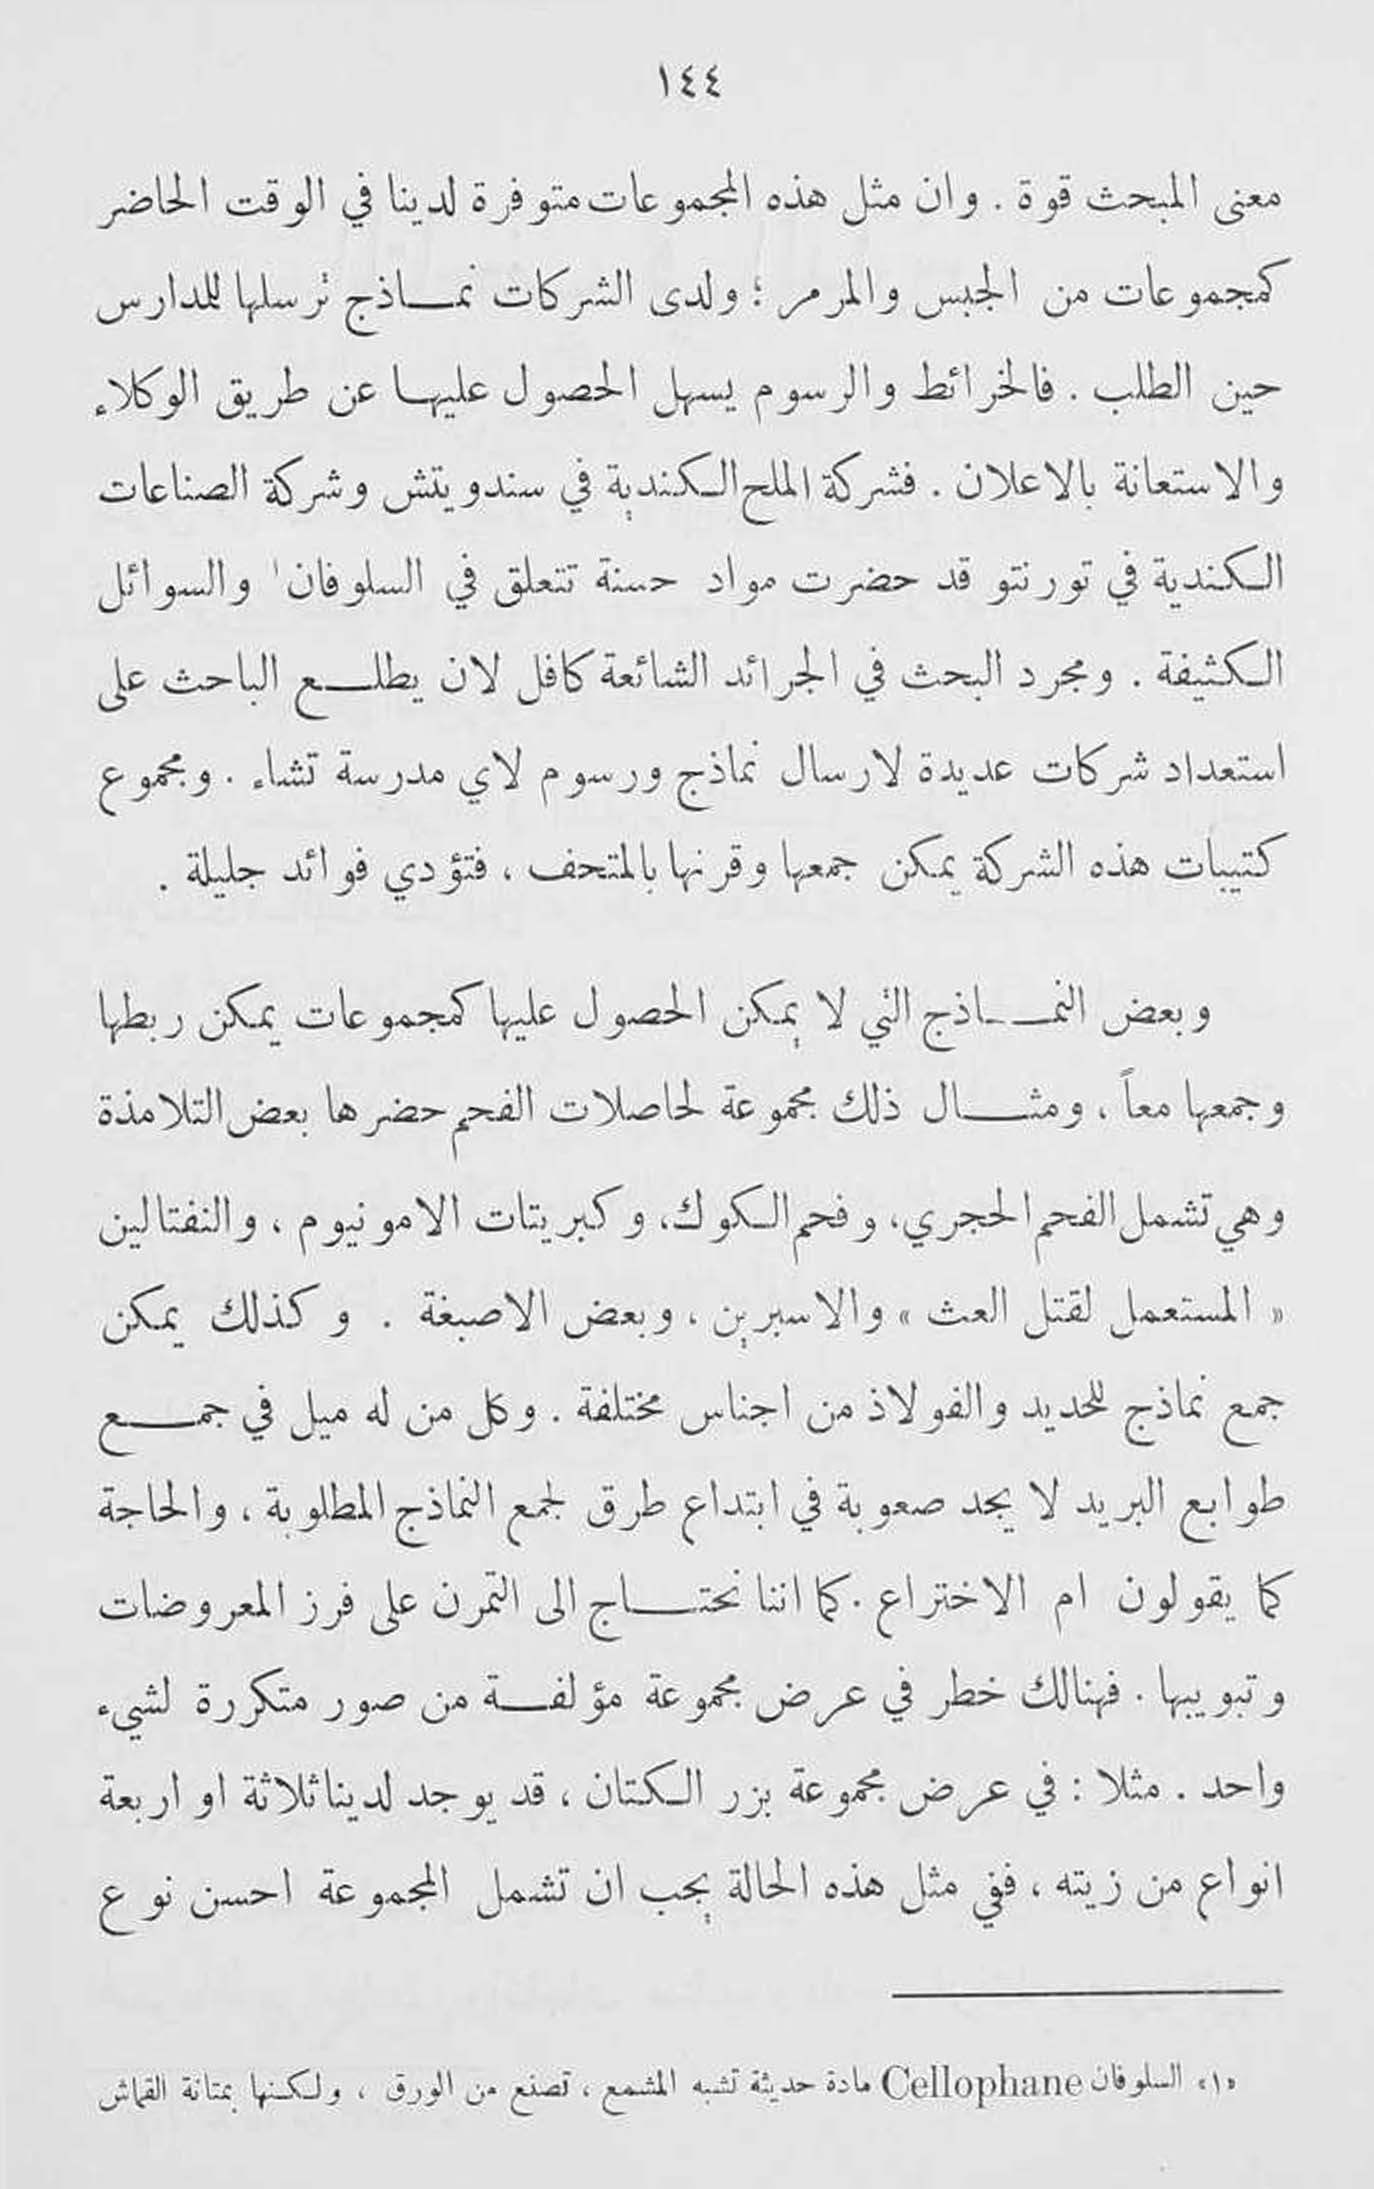 ١٤٤
معنى المبحث قوة . وان مثل هذه المجموعات متوفرة لدينا في الوقت الحاضر
كمجموعات من الجبس والمرمر ؛ ولدى الشركات نمـاذج ترسلها للمدارس
حين الطلب . فالخرائط والرسوم يسهل الحصول عليهـا عن طريق الوكلاء
والاستعانة بالاعلان . فشركة الملح الـكندية في سندويتش وشركة الصناعات
الـكندية في تورنتو قد حضرت مواد حسنة تتعلق في السلوفان ١ والسوائل
الـكثيفة . ومجرد البحث في الجرائد الشائعة كافل لان يطلـع الباحث على
استعداد شركات عديدة لارسال نماذج ورسوم لاي مدرسة تشاء . ومجموع
كتيبات هذه الشركة يمكن جمعها وقرنها بالمتحف ، فتؤدي فوائد جليلة .
وبعض النمـاذج التي لا يمكن الحصول عليها كمجموعات يمكن ربطها
وجمعها معاً ، ومثـال ذلك مجموعة لحاصلات الفحم حضرها بعض التلامذة
وهي تشمل الفحم الحجري، وفحم الـكوك، وكبريتات الامونيوم ، والنفتالين
« المستعمل لقتل العث » والاسبرين ، وبعض الاصبغة . وكذلك يمكن
جمع نماذج للحديد والفولاذ من اجناس مختلفة . وكل من له ميل في جمـع
طوابع البريد لا يجد صعوبة في ابتداع طرق لجمع النماذج المطلوبة ، والحاجة
كما يقولون ام الاختراع . كما اننا نحتـاج الى التمرن على فرز المعروضات
وتبويبها . فهنالك خطر في عرض مجموعة مؤلفـة من صور متكررة لشيء
واحد . مثلا : في عرض مجموعة بزر الـكتان ، قد يوجد لدينا ثلاثة او اربعة
انواع من زيته ، ففي مثل هذه الحالة يجب ان تشمل المجموعة احسن نوع
«١» السلوفان Cellophane مادة حديثة تشبه المشمع ، تصنع من الورق ، ولـكنها بمتانة القماش